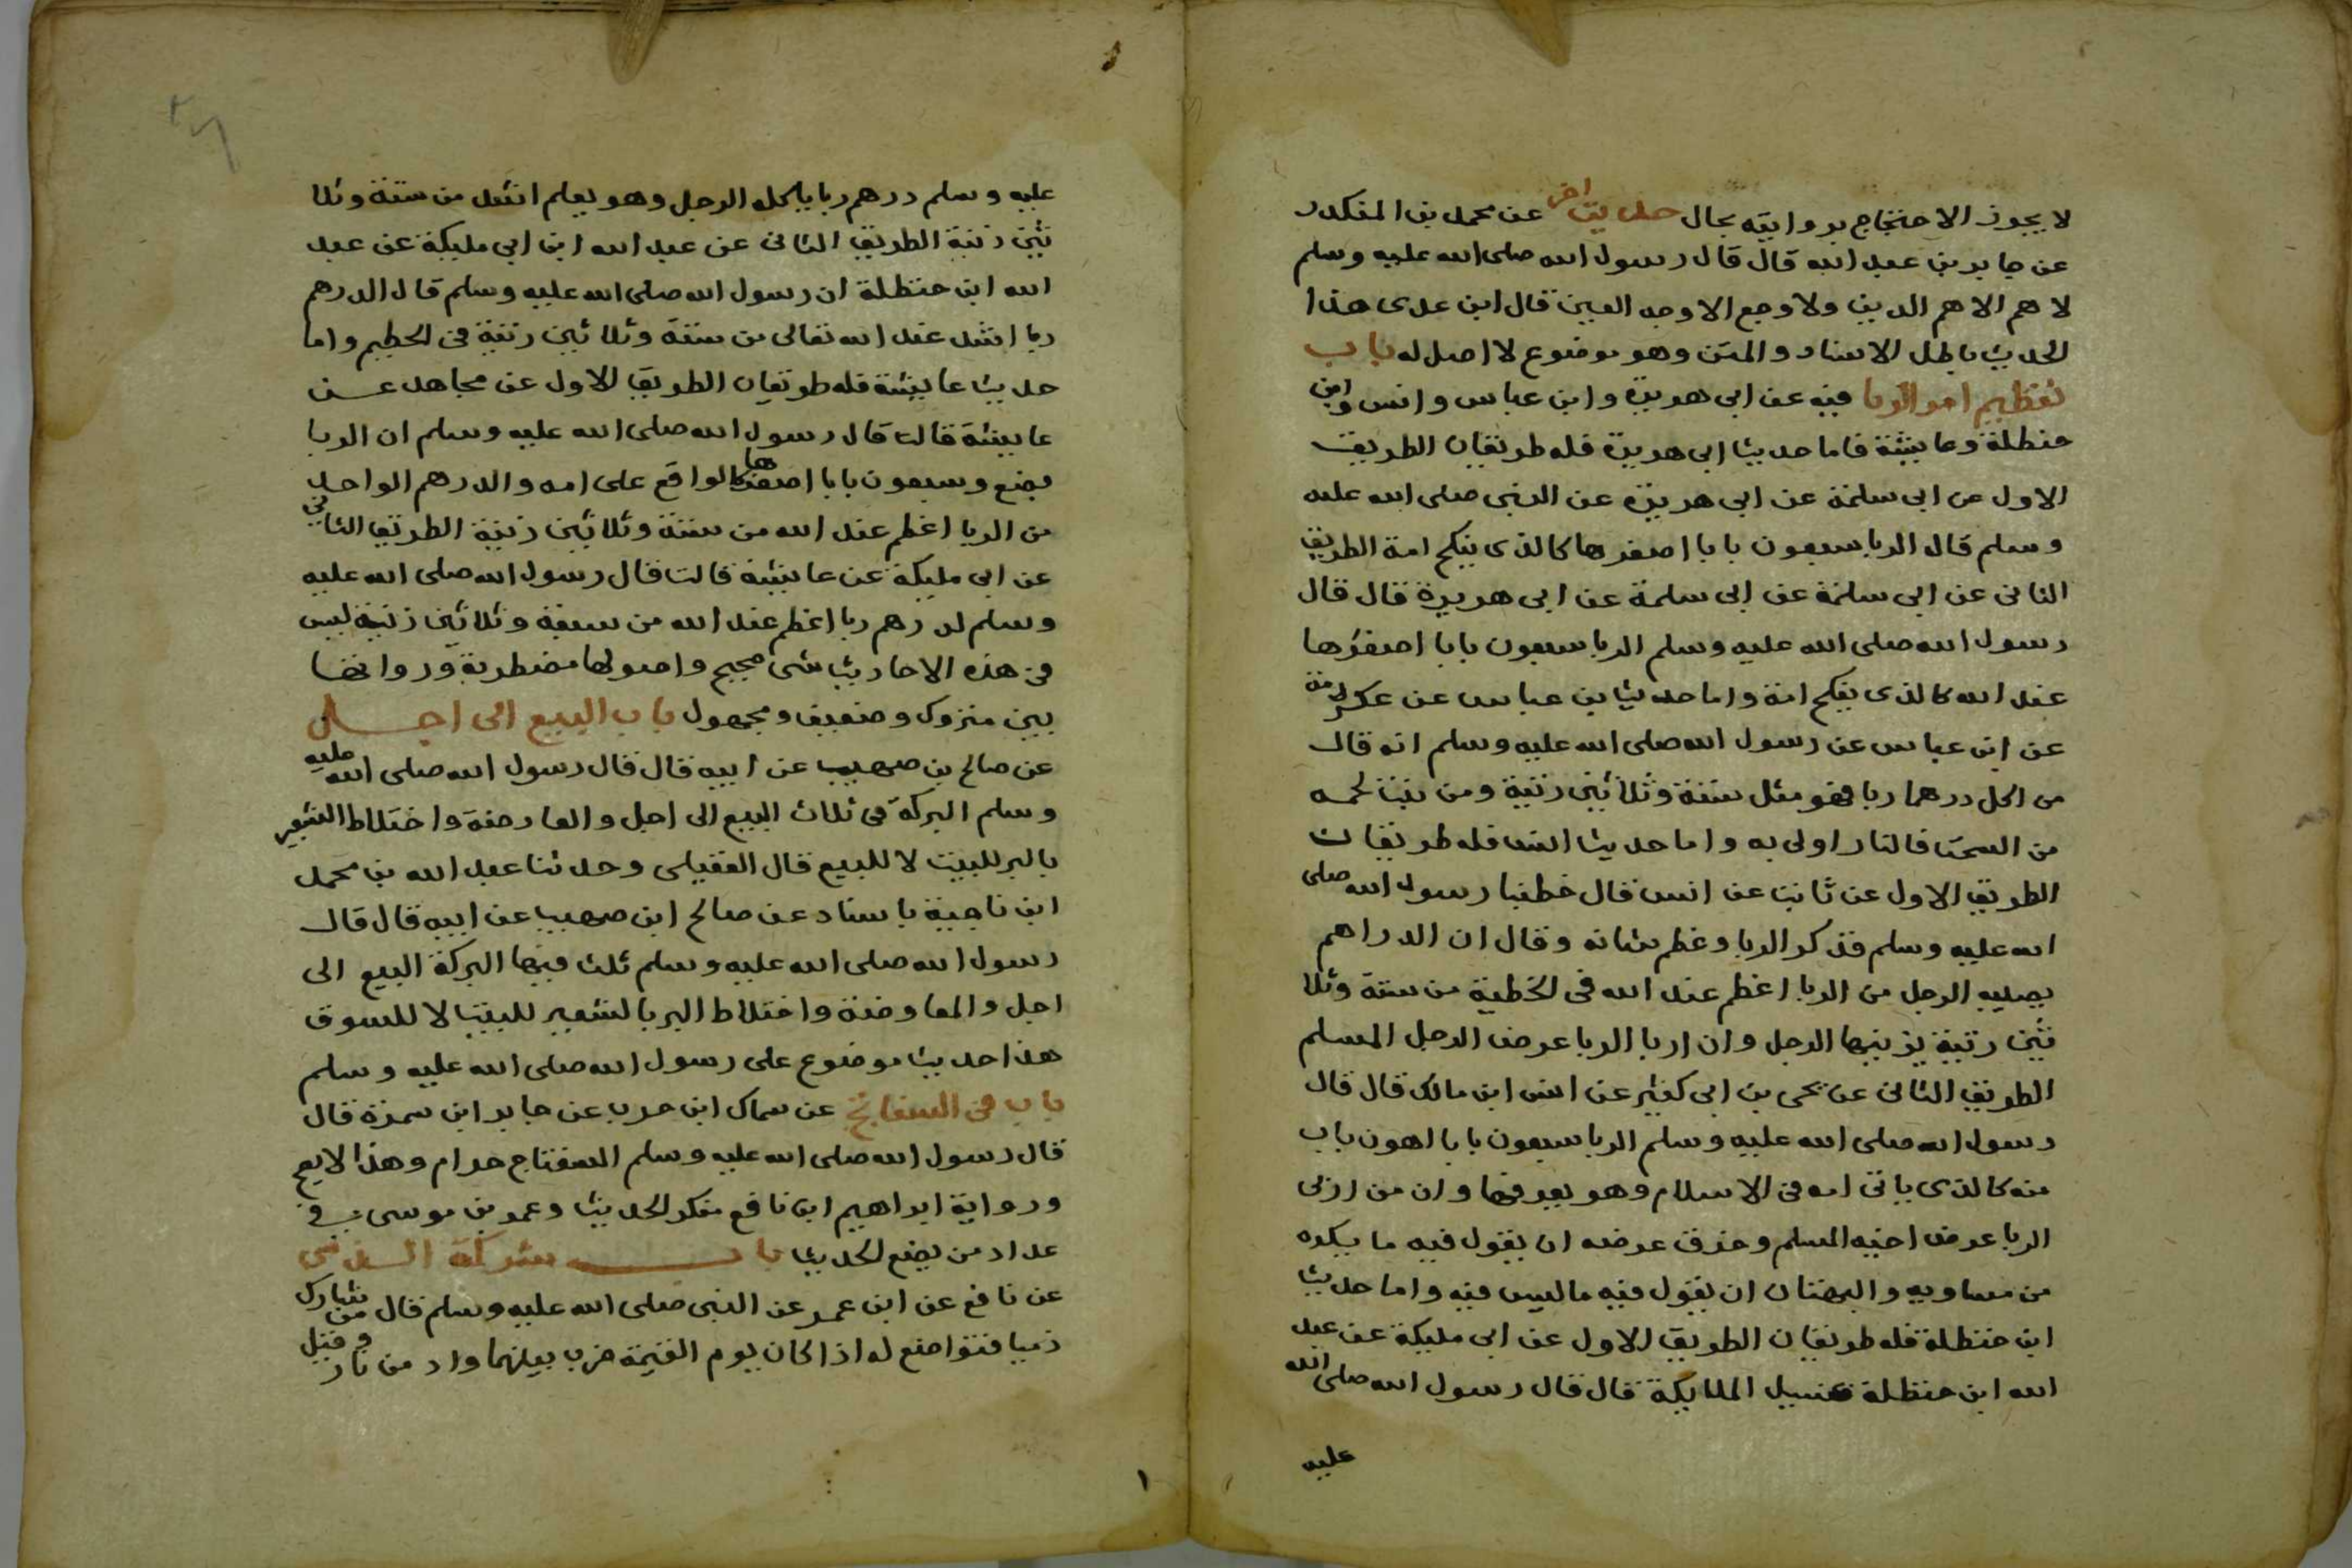 لا يجوز الاحتجاج بروايته بحال حديث اخر عن محمد بن المنكدر
عن جابر بن عبد الله قال قال رسول الله صلى الله عليه وسلم
لا هم الا هم الدين ولا وجع الا وجه العين قال ابن عدى هذا
الحديث باطل الاسناد والمتن وهو موضوع لا اصل له باب
تعظيم امر الربا فيه عن ابى هريرة وابن عباس وانس وابن
حنظلة وعايشة فاما حديث ابى هريرة فله طريقان الطريق
الاول عن ابى سلمة عن ابى هريرة عن النبى صلى الله عليه
وسلم قال الربا سبعون بابا اصغرها كالذى ينكح امة الطريق
الثانى عن ابى سلمة عن ابى سلمة عن ابى هريرة قال قال
رسول الله صلى الله عليه وسلم الربا سبعون بابا اصغرها
عند الله كالذى ينكح امة واما حديث ابن عباس عن عكرمة
عن ابن عباس عن رسول الله صلى الله عليه وسلم انه قال
من اكل درهما ربا فهو مثل ستة وثلاثين زنية ومن نبت لحمه
من السحت فالنار اولى به واما حديث انس فله طريقان
الطريق الاول عن ثابت عن انس قال خطبنا رسول الله صلى
الله عليه وسلم فذكر الربا وعظم شانه وقال ان الدراهم
يصيبه الرجل من الربا اعظم عند الله فى الخطية من ستة وثلا
ثين زنية يزنيها الرجل وان اربا الربا عرض الرجل المسلم
الطريق الثانى عن يحى بن ابى كثير عن انس ابن مالك قال قال
رسول الله صلى الله عليه وسلم الربا سبعون بابا اهون باب
منه كالذى ياتى امه فى الاسلام وهو يعرفها وان من اربى
الربا عرض اخيه المسلم وخرق عرضه ان يقول فيه ما يكره
من مساويه والبهتان ان يقول فيه ما ليس فيه واما حديث
ابن حنظلة فله طريقان الطريق الاول عن ابى مليكة عن عبد
الله ابن حنظلة غسيل الملايكة قال قال رسول الله صلى الله
عليه
عليه وسلم درهم ربا ياكله الرجل وهو يعلم اشد من ستة وثلا
ثين زنية الطريق الثانى عن عبد الله ابن ابى مليكة عن عبد
الله ابن حنظلة ان رسول الله صلى الله عليه وسلم قال الدرهم
ربا اشد عند الله تعالى من ستة وثلاثين زنية فى الحطيم واما
حديث عايشة فله طريقان الطريق الاول عن مجاهد عن
عايشة قالت قال رسول الله صلى الله عليه وسلم ان الربا
بضع وسبعون بابا اصغرها كالواقع على امه والدرهم الواحد
من الربا اعظم عند الله من ستة وثلاثين زنية الطريق الثانى
عن ابى مليكة عن عايشة قالت قال رسول الله صلى الله عليه
وسلم لدرهم ربا اعظم عند الله من سبعة وثلاثين زنية ليس
فى هذه الاحاديث شى صحيح واصولها مضطربة ورواتها
بين متروك وضعيف ومجهول باب البيع الى اجل
عن صالح بن صهيب عن ابيه قال قال رسول الله صلى الله عليه
وسلم البركة فى ثلاث البيع الى اجل والعارضة واختلاط الشعير
بالبر للبيت لا للبيع قال العقيلى وحدثنا عبد الله بن محمد
ابن ناجية باسناد عن صالح ابن صهيب عن ابيه قال قال
رسول الله صلى الله عليه وسلم ثلث فيها البركة البيع الى
اجل والمعاوضة واختلاط البر بالشعير للبيت لا للسوق
هذا حديث موضوع على رسول الله صلى الله عليه وسلم
باب فى السفاتج عن سماك ابن حرب عن جابر ابن سمرة قال
قال رسول الله صلى الله عليه وسلم السفتاج حرام وهذا لا يصح
ورواية ابراهيم ابن نافع منكر الحديث وعمر بن موسى فى
عداد من يضع الحديث باب شركة الذمى
عن نافع عن ابن عمر عن النبى صلى الله عليه وسلم قال من شارك
ذميا فتواضع له اذا كان يوم القيمة ضرب بينهما واد من نار وقيل